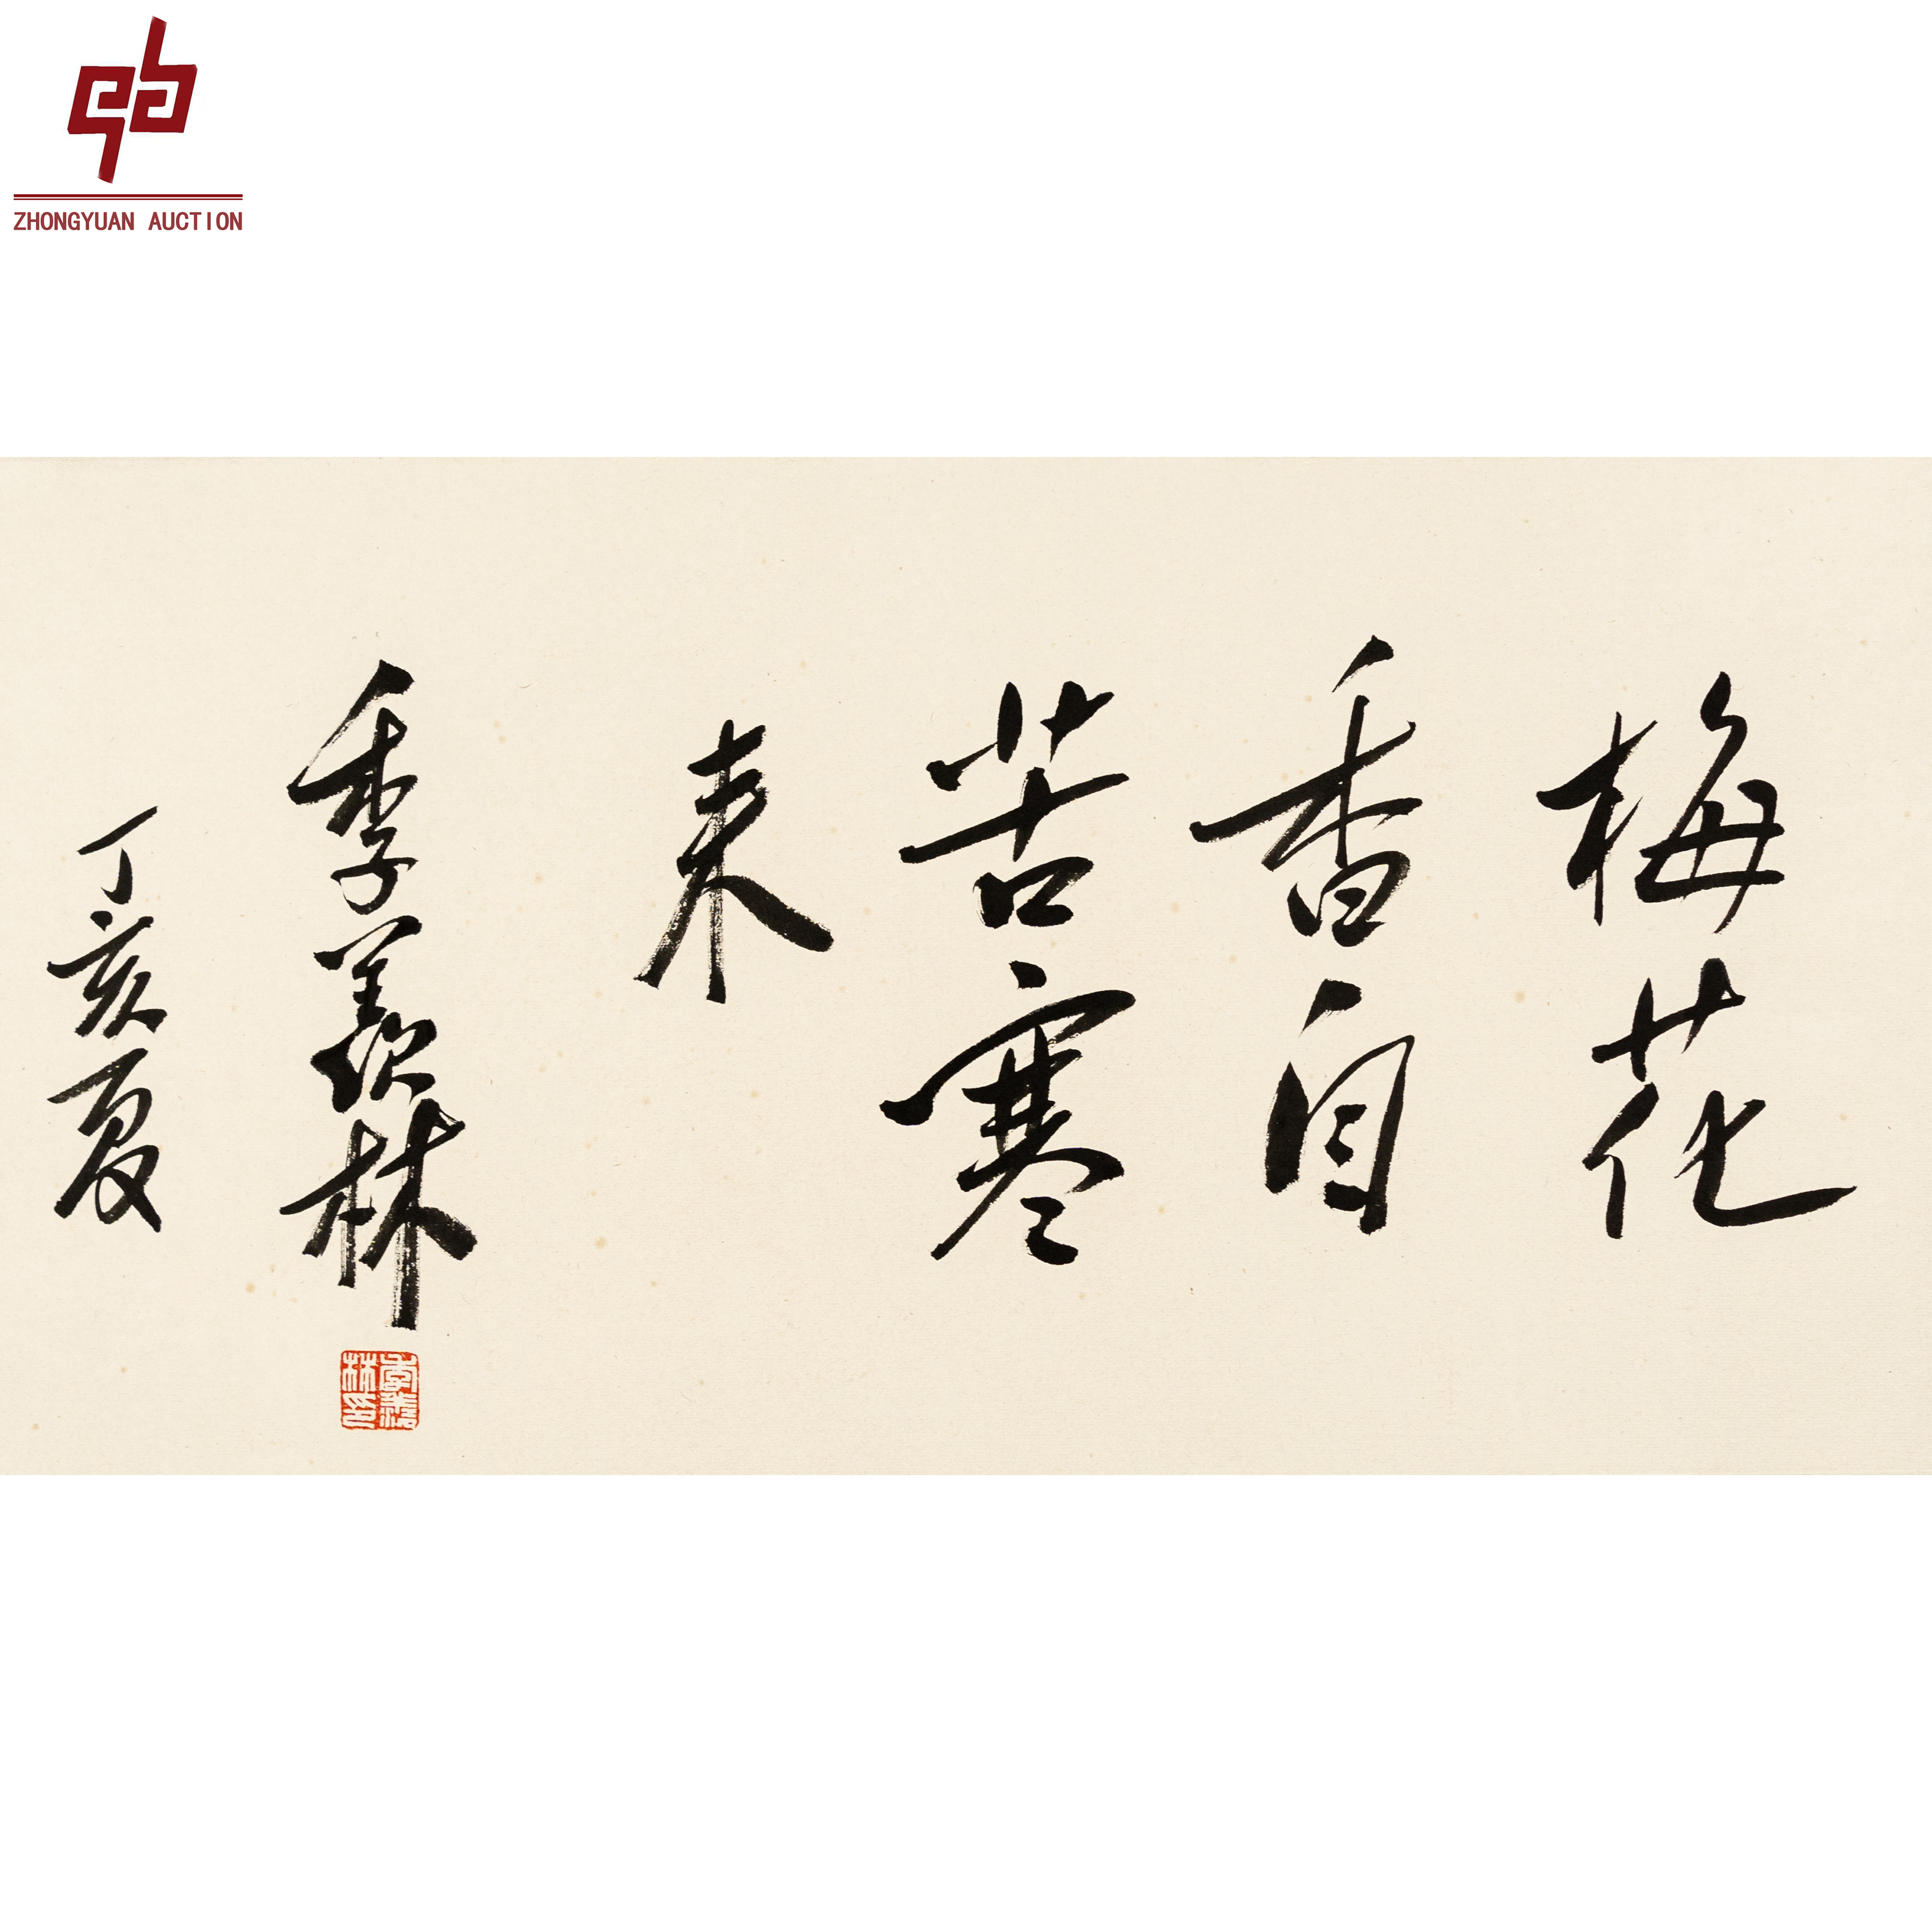 ZHONGYUAN AUCTION
梅花
香自
苦寒
来
季羡林
丁亥夏
季羡林印